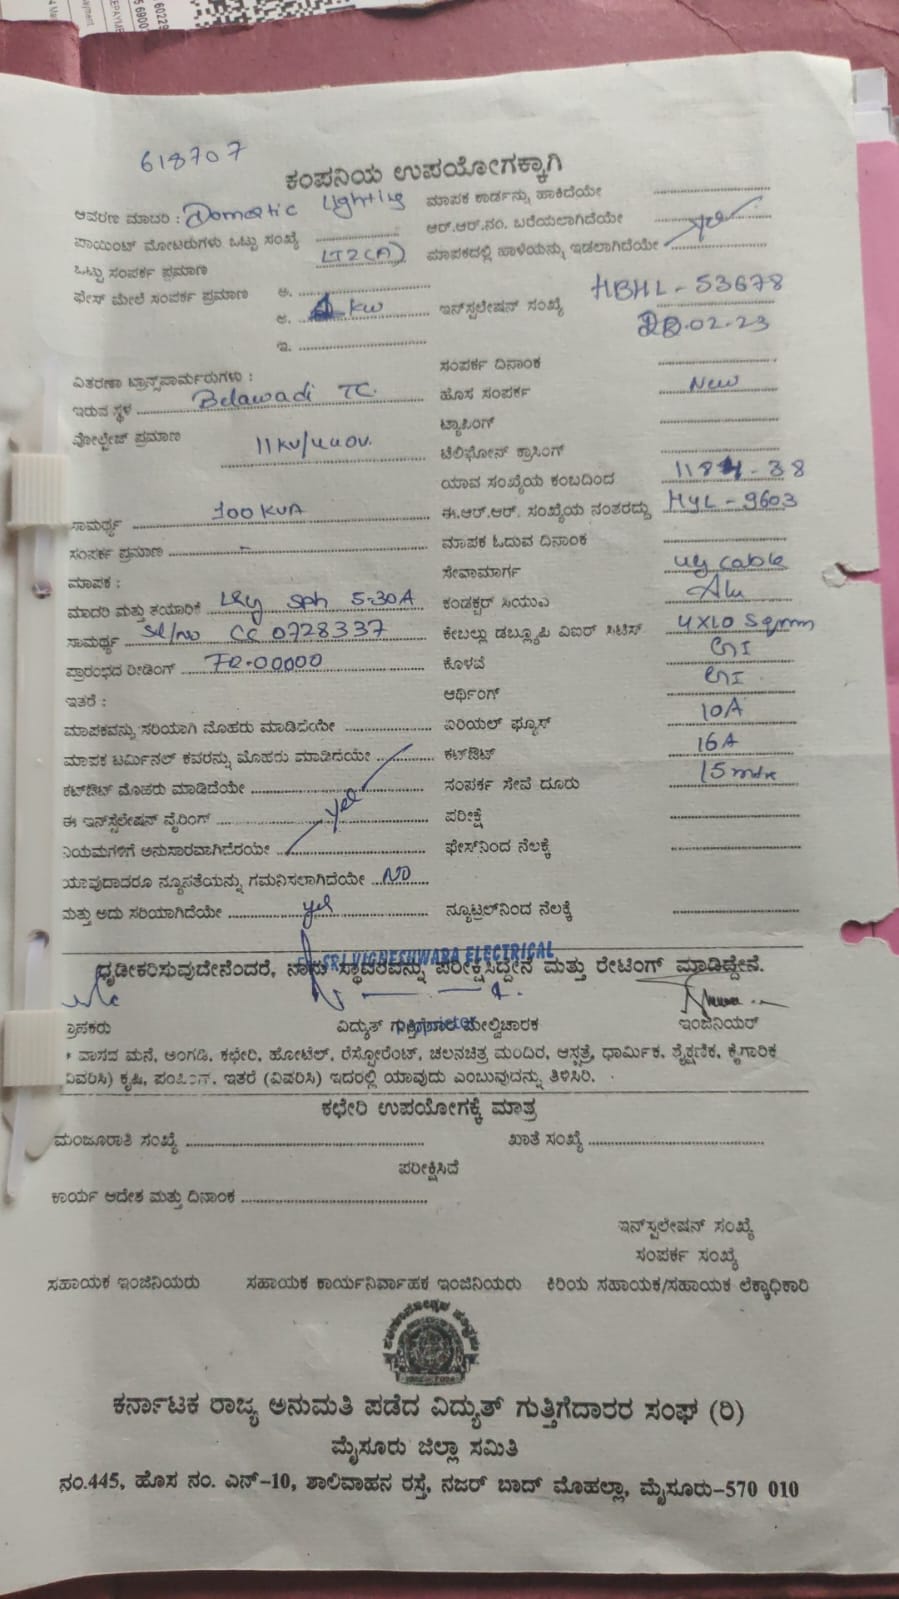 618707
ಕಂಪನಿಯ ಉಪಯೋಗಕ್ಕಾಗಿ
ಆವರಣ ಮಾದರಿ : Domestic Lighting ಮಾಪಕ ಕಾರ್ಡನ್ನು ಹಾಕಿದೆಯೇ
ಪಾಯಿಂಟ್ ಮೋಟರುಗಳು ಒಟ್ಟು ಸಂಖ್ಯೆ ಆರ್.ಆರ್.ನಂ. ಬರೆಯಲಾಗಿದೆಯೇ
ಒಟ್ಟು ಸಂಪರ್ಕ ಪ್ರಮಾಣ LT2(A) ಮಾಪಕದಲ್ಲಿ ಹಾಳೆಯನ್ನು ಇಡಲಾಗಿದೆಯೇ yes
ಫೇಸ್ ಮೇಲೆ ಸಂಪರ್ಕ ಪ್ರಮಾಣ ಅ.
ಆ. KW ಇನ್‌ಸ್ಟಲೇಷನ್ ಸಂಖ್ಯೆ HBHL - 53678
ಇ. .02.23
ವಿತರಣಾ ಟ್ರಾನ್ಸ್‌ಫಾರ್ಮರುಗಳು : ಸಂಪರ್ಕ ದಿನಾಂಕ
ಇರುವ ಸ್ಥಳ Belawadi TC. ಹೊಸ ಸಂಪರ್ಕ New
ವೋಲ್ಟೇಜ್ ಪ್ರಮಾಣ 11KV/440V. ಟ್ಯಾಪಿಂಗ್
ಟೆಲಿಫೋನ್ ಕ್ರಾಸಿಂಗ್
ಯಾವ ಸಂಖ್ಯೆಯ ಕಂಬದಿಂದ
ಸಾಮರ್ಥ್ಯ 100 KVA ಈ.ಆರ್.ಆರ್. ಸಂಖ್ಯೆಯ ನಂತರದ್ದು HYL - 9603
ಸಂಪರ್ಕ ಪ್ರಮಾಣ - ಮಾಪಕ ಓದುವ ದಿನಾಂಕ
ಮಾಪಕ : ಸೇವಾಮಾರ್ಗ ug cable
ಮಾದರಿ ಮತ್ತು ತಯಾರಿಕೆ L&G Sph 5-30A ಕಂಡಕ್ಟರ್ ಸಿಯುಎ Alu
ಸಾಮರ್ಥ್ಯ Sl/no CC 0728337 ಕೇಬಲ್ಲು ಡಬ್ಲ್ಯೂಪಿ ವಿಐರ್ ಸಿಟಿಸ್ 4X10 Sqmm
ಪ್ರಾರಂಭದ ರೀಡಿಂಗ್ FR-00000 ಕೊಳವೆ GI
ಇತರೆ : ಆರ್ಥಿಂಗ್ GI
ಮಾಪಕವನ್ನು ಸರಿಯಾಗಿ ಮೊಹರು ಮಾಡಿದೆಯೇ ಎರಿಯಲ್ ಫ್ಯೂಸ್ 10A
ಮಾಪಕ ಟರ್ಮಿನಲ್ ಕವರನ್ನು ಮೊಹರು ಮಾಡಿದೆಯೇ ಕಟ್‌ಔಟ್ 16A
ಕಟ್‌ಔಟ್ ಮೊಹರು ಮಾಡಿದೆಯೇ ಸಂಪರ್ಕ ಸೇವೆ ದೂರು 15 mtr
ಈ ಇನ್‌ಸ್ಟಲೇಷನ್ ವೈರಿಂಗ್ yes ಪರೀಕ್ಷೆ
ನಿಯಮಗಳಿಗೆ ಅನುಸಾರವಾಗಿದೆರಯೇ ಫೇಸ್‌ನಿಂದ ನೆಲಕ್ಕೆ
ಯಾವುದಾದರೂ ನ್ಯೂನತೆಯನ್ನು ಗಮನಿಸಲಾಗಿದೆಯೇ NO
ಮತ್ತು ಅದು ಸರಿಯಾಗಿದೆಯೇ yes ನ್ಯೂಟ್ರಲ್‌ನಿಂದ ನೆಲಕ್ಕೆ
SRI VIGNESHWARA ELECTRICAL
ಧೃಡೀಕರಿಸುವುದೇನೆಂದರೆ, ನಾನು ಸ್ಥಾವರವನ್ನು ಪರೀಕ್ಷಿಸಿದ್ದೇನೆ ಮತ್ತು ರೇಟಿಂಗ್ ಮಾಡಿದ್ದೇನೆ.
ವಿದ್ಯುತ್ ಗುತ್ತಿಗೆದಾರ ಮೇಲ್ವಿಚಾರಕ ಇಂಜಿನಿಯರ್
* ವಾಸದ ಮನೆ, ಅಂಗಡಿ, ಕಛೇರಿ, ಹೋಟೆಲ್, ರೆಸ್ಟೋರೆಂಟ್, ಚಲನಚಿತ್ರ ಮಂದಿರ, ಆಸ್ಪತ್ರೆ, ಧಾರ್ಮಿಕ, ಶೈಕ್ಷಣಿಕ, ಕೈಗಾರಿಕ
ವಿವರಿಸಿ) ಕೃಷಿ, ಇತರೆ (ವಿವರಿಸಿ) ಇದರಲ್ಲಿ ಯಾವುದು ಎಂಬುವುದನ್ನು ತಿಳಿಸಿರಿ.
ಕಛೇರಿ ಉಪಯೋಗಕ್ಕೆ ಮಾತ್ರ
ಮಂಜೂರಾತಿ ಸಂಖ್ಯೆ ಖಾತೆ ಸಂಖ್ಯೆ
ಪರೀಕ್ಷಿಸಿದೆ
ಕಾರ್ಯ ಆದೇಶ ಮತ್ತು ದಿನಾಂಕ
ಇನ್‌ಸ್ಟಲೇಷನ್ ಸಂಖ್ಯೆ
ಸಂಪರ್ಕ ಸಂಖ್ಯೆ
ಸಹಾಯಕ ಇಂಜಿನಿಯರು ಸಹಾಯಕ ಕಾರ್ಯನಿರ್ವಾಹಕ ಇಂಜಿನಿಯರು ಕಿರಿಯ ಸಹಾಯಕ/ಸಹಾಯಕ ಲೆಕ್ಕಾಧಿಕಾರಿ
ಕರ್ನಾಟಕ ರಾಜ್ಯ ಅನುಮತಿ ಪಡೆದ ವಿದ್ಯುತ್ ಗುತ್ತಿಗೆದಾರರ ಸಂಘ (ರಿ)
ಮೈಸೂರು ಜಿಲ್ಲಾ ಸಮಿತಿ
ನಂ.445, ಹೊಸ ನಂ. ಎನ್-10, ಶಾಲಿವಾಹನ ರಸ್ತೆ, ನಜರ್ ಬಾದ್ ಮೊಹಲ್ಲಾ, ಮೈಸೂರು-570 010